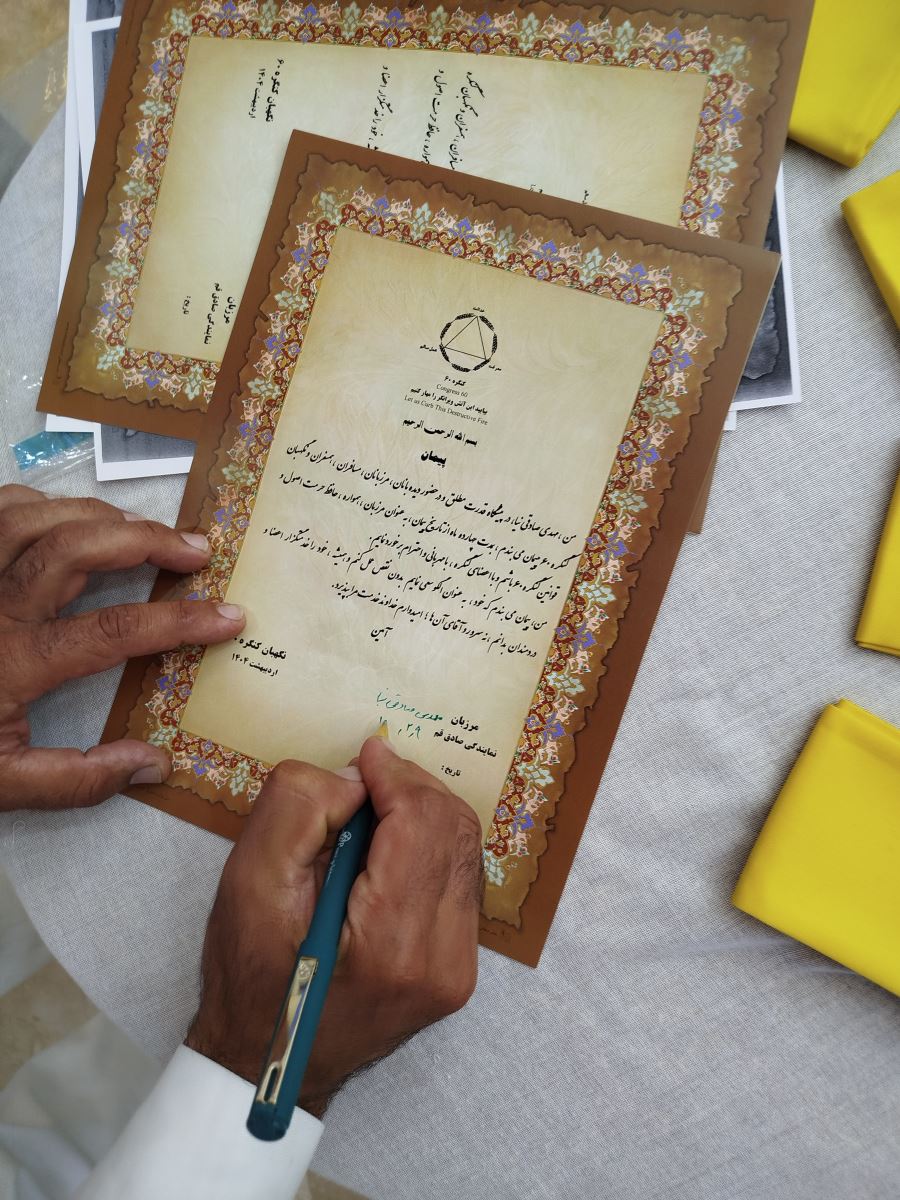 عدالت
معرفت
عمل سالم
کنگره ۶۰
Congress 60
بیایید این آتش ویرانگر را مهار کنیم
Let us Curb This Destructive Fire
بسم الله الرحمن الرحیم
پیمان
من، مهدی صادقی نیا، در پیشگاه قدرت مطلق و در حضور دیده‌بانان، مرزبانان، مسافران، همسفران و نگهبان
کنگره ۶۰ پیمان می بندم؛ بمدت چهارده ماه از تاریخ پیمان، به عنوان مرزبان، همواره، حافظ حرمت اصول و
قوانین کنگره ۶۰ باشم و با اعضای کنگره، با مهربانی و احترام برخورد نمایم.
من، پیمان می بندم که خود، به عنوان الگو سعی نمایم بدون نقص عمل کنم و همیشه، خود را خدمتگزار اعضا و
دردمندان بدانم، نه سرور و آقای آن ها؛ امیدوارم خداوند خدمت مرا بپذیرد.
آمین
نگهبان کنگره ۶۰
اردیبهشت ۱۴۰۴
مرزبان مهدی صادقی نیا
نمایندگی صادق قم
تاریخ:
نگهبان کنگره ۶۰
اردیبهشت ۱۴۰۴
مرزبان
نمایندگی صادق قم
تاریخ: